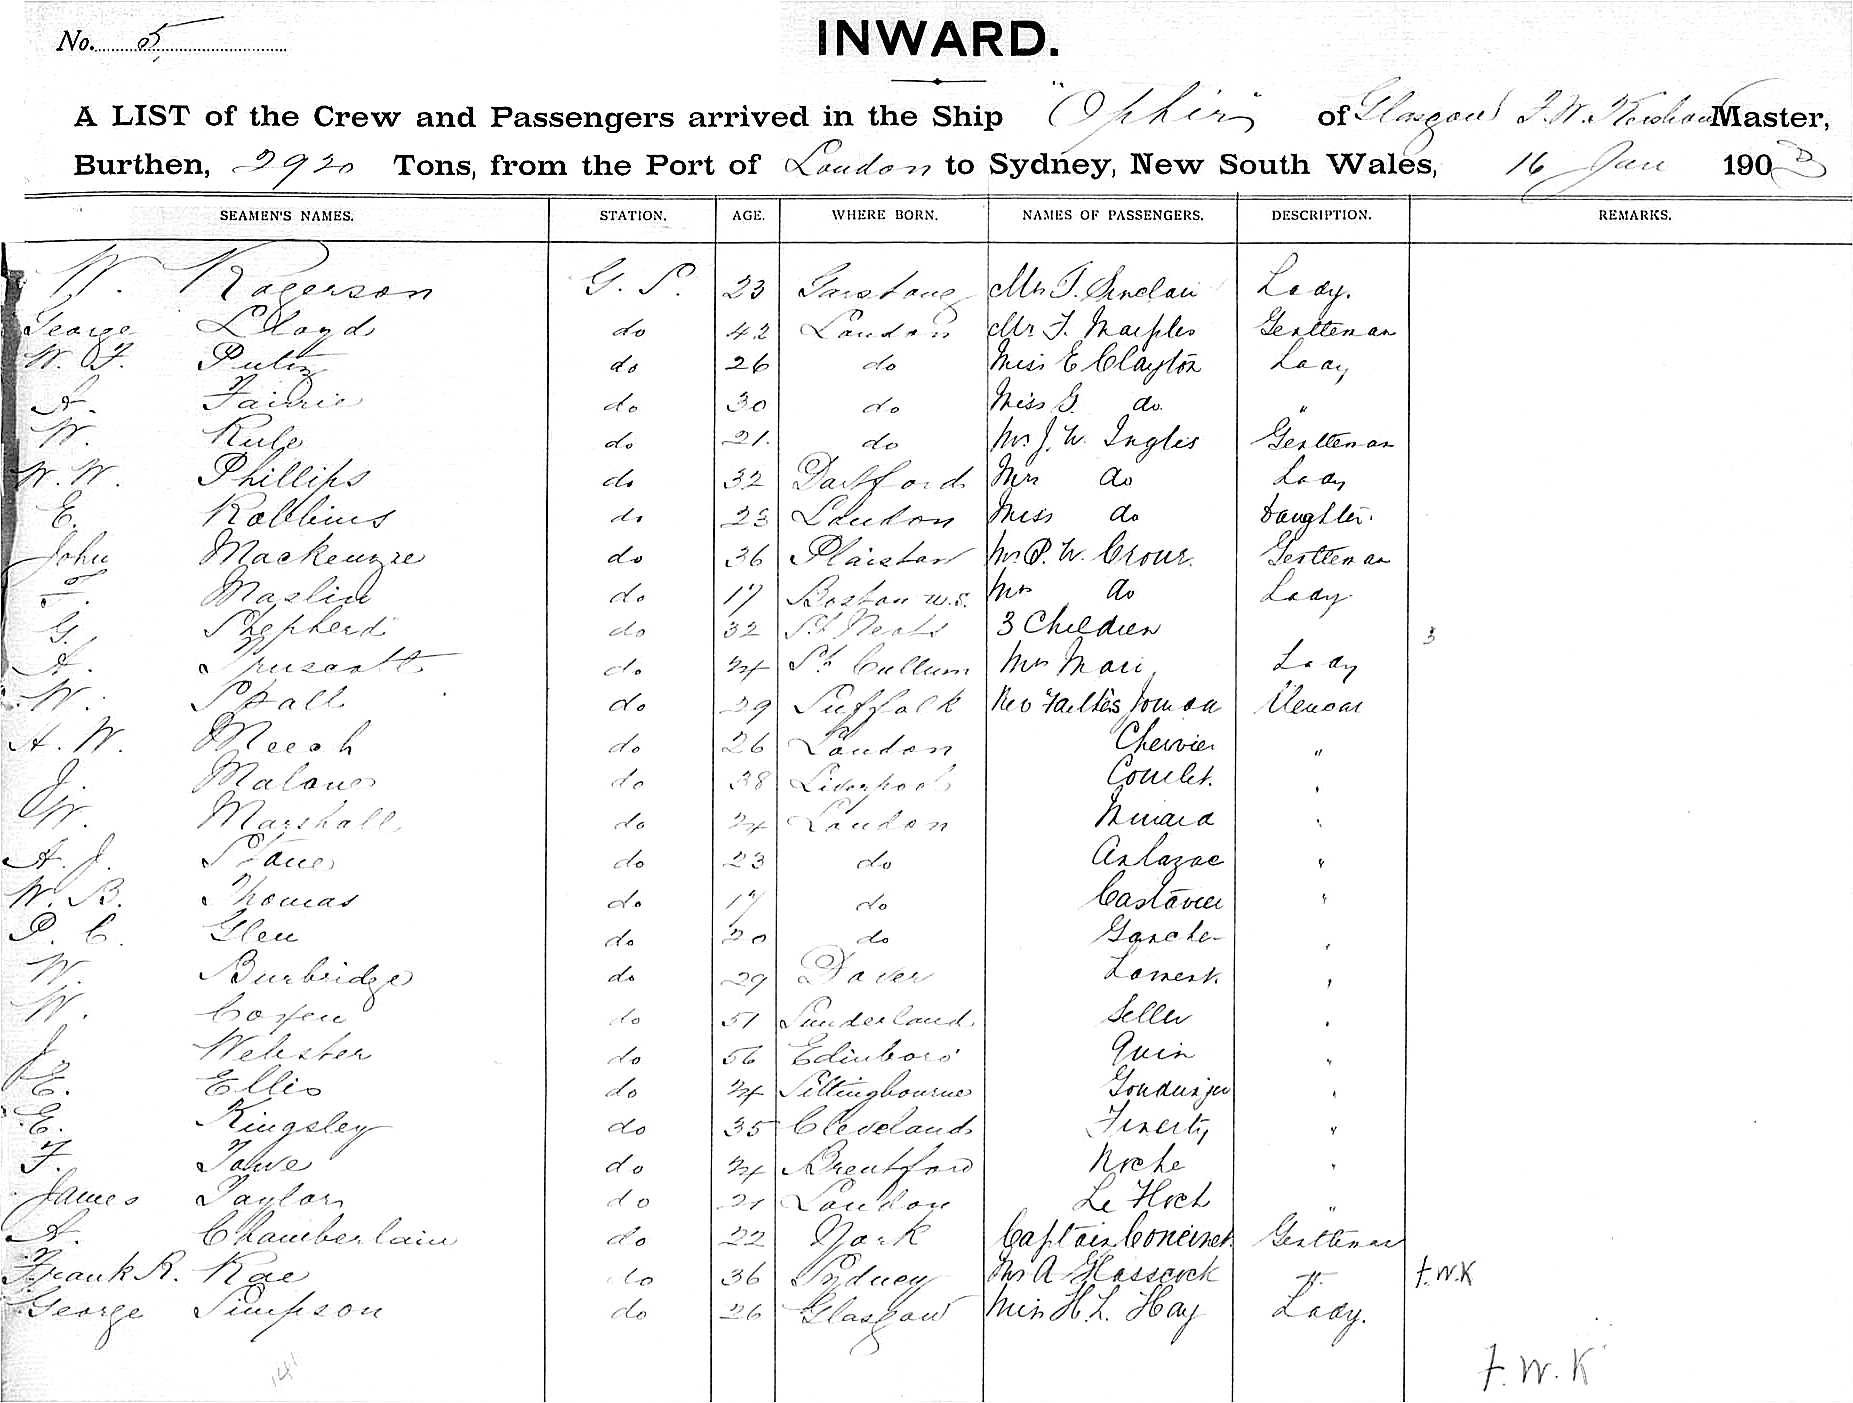 No. 5
INWARD.
A LIST of the Crew and Passengers arrived in the Ship "Ophir" of Glasgow F. W. Kershaw Master,
Burthen, 2920 Tons, from the Port of London to Sydney, New South Wales, 16 Jan 1903
SEAMEN'S NAMES. STATION. AGE. WHERE BORN. NAMES OF PASSENGERS. DESCRIPTION. REMARKS.
W. Rogerson G. S. 23 Garstang Mrs T. Sinclair Lady.
George Lloyd do 42 London Mr F. Marples Gentleman
W. F. do 26 do Miss E Clayton Lady
A. Fairrie do 30 do Miss G. do "
W. Rule do 21. do Mr J. W. Ingles Gentleman
W. W. Phillips do 32 Dartford Mrs do Lady
E. Robbins do 23 London Miss do Daughter.
John Mackenzie do 36 Plaistow Mr P. W. Gentleman
Maslin do 17 Boston U.S. Mrs do Lady
G. Shepherd do 32 St Neots 3 Children 3
A. Truscott do 24 St Cullum Mrs Lady
W. Spall do 29 Suffolk Rev Fathers
A. W. Meech do 26 London Chervier "
J. Malone do 38 Liverpool "
W. Marshall do 24 London "
A. J. Stone do 23 do "
W. B. Thomas do 17 do "
P. C. Glen do 20 do "
W. Burbridge do 29 Dover "
W. do 51 Sunderland "
J. Webster do 56 Edinboro' Quin "
E. Ellis do 24 Sittingbourne "
E. Kingsley do 35 Cleveland Finerty "
F. Towe do 24 Brentford Roche "
James Taylor do 21 London "
A. Chamberlain do 22 York Captain Gentleman
Frank R. Rae do 36 Sydney Mr A Glasscock F.W.K
George Simpson do 26 Glasgow Miss H. L. Hay Lady.
141
F. W. K